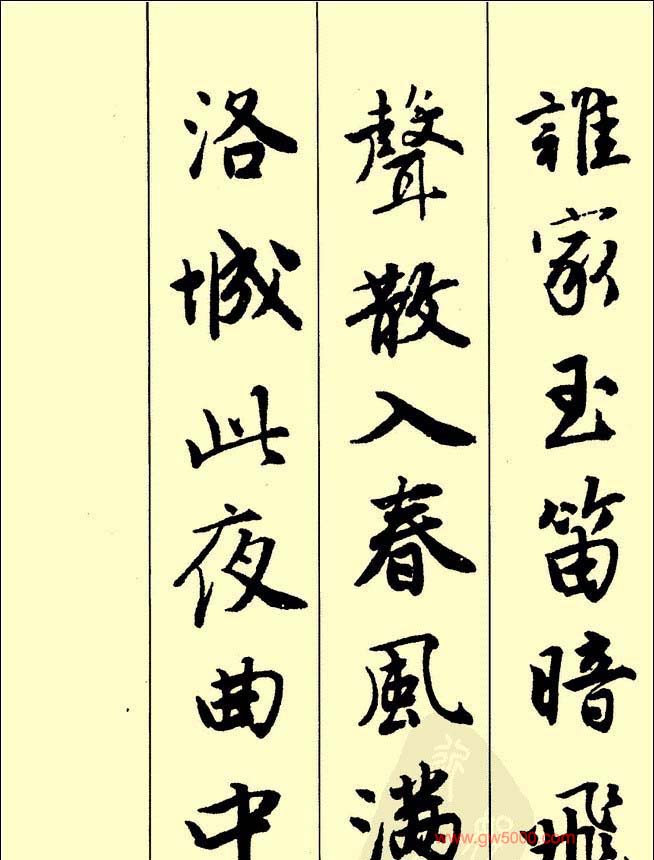 誰家玉笛暗飛
聲散入春風滿
洛城此夜曲中
www.gw5000.com